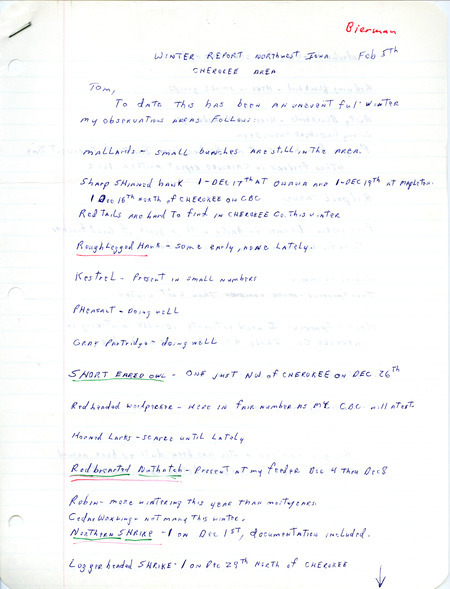 Bierman
Winter Report Northwest Iowa Feb 5th
Cherokee Area
Tom,
To date this has been an uneventful winter
my observation areas follows:
mallards - small bunches are still in the area.
Sharp Shinned hawk 1-Dec 17th at Onawa and 1-Dec 19th at Mapleton.
1 Dec 16th north of Cherokee on CBC
Red tails are hard to find in Cherokee Co. this winter
Rough legged Hawk - some early, none lately.
Kestrel - Present in small numbers
Pheasant - Doing well
Gray Partridge - doing well
Short eared owl - one just NW of Cherokee on Dec 26th
Red headed woodpecker - here in fair number as my CBC will attest.
Horned Larks - scarce until lately
Red breasted Nuthatch - Present at my feeder Dec 4 thru Dec 8
Robin - more wintering this year than most years.
Cedar Waxwing - not many this winter.
Northern Shrike - 1 on Dec 1st, documentation included.
Loggerheaded Shrike - 1 on Dec 29th north of Cherokee